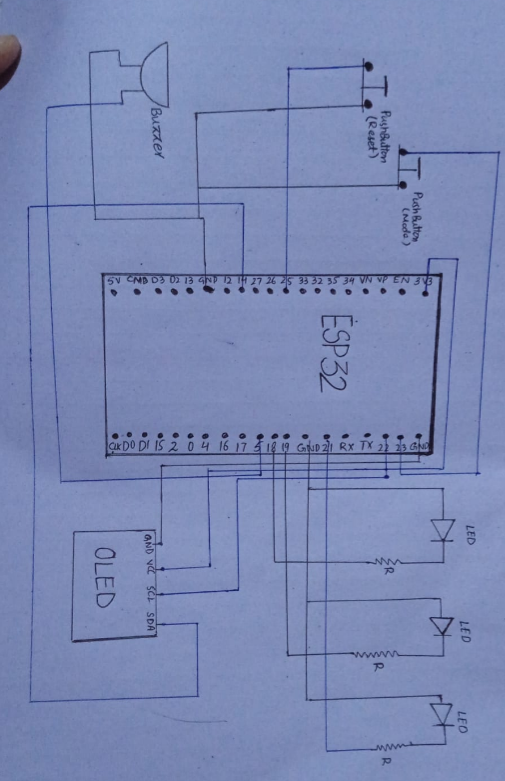 Buzzer
PushButton
(Reset)
PushButton
(Mode)
5V GND D3 D2 13 GND 12 14 27 26 25 33 32 35 34 VN VP EN 3V3
ESP32
CLK D0 D1 15 2 0 4 16 17 5 18 19 GND 21 RX TX 22 23 GND
OLED
GND VCC SCL SDA
LED
R
LED
R
LED
R